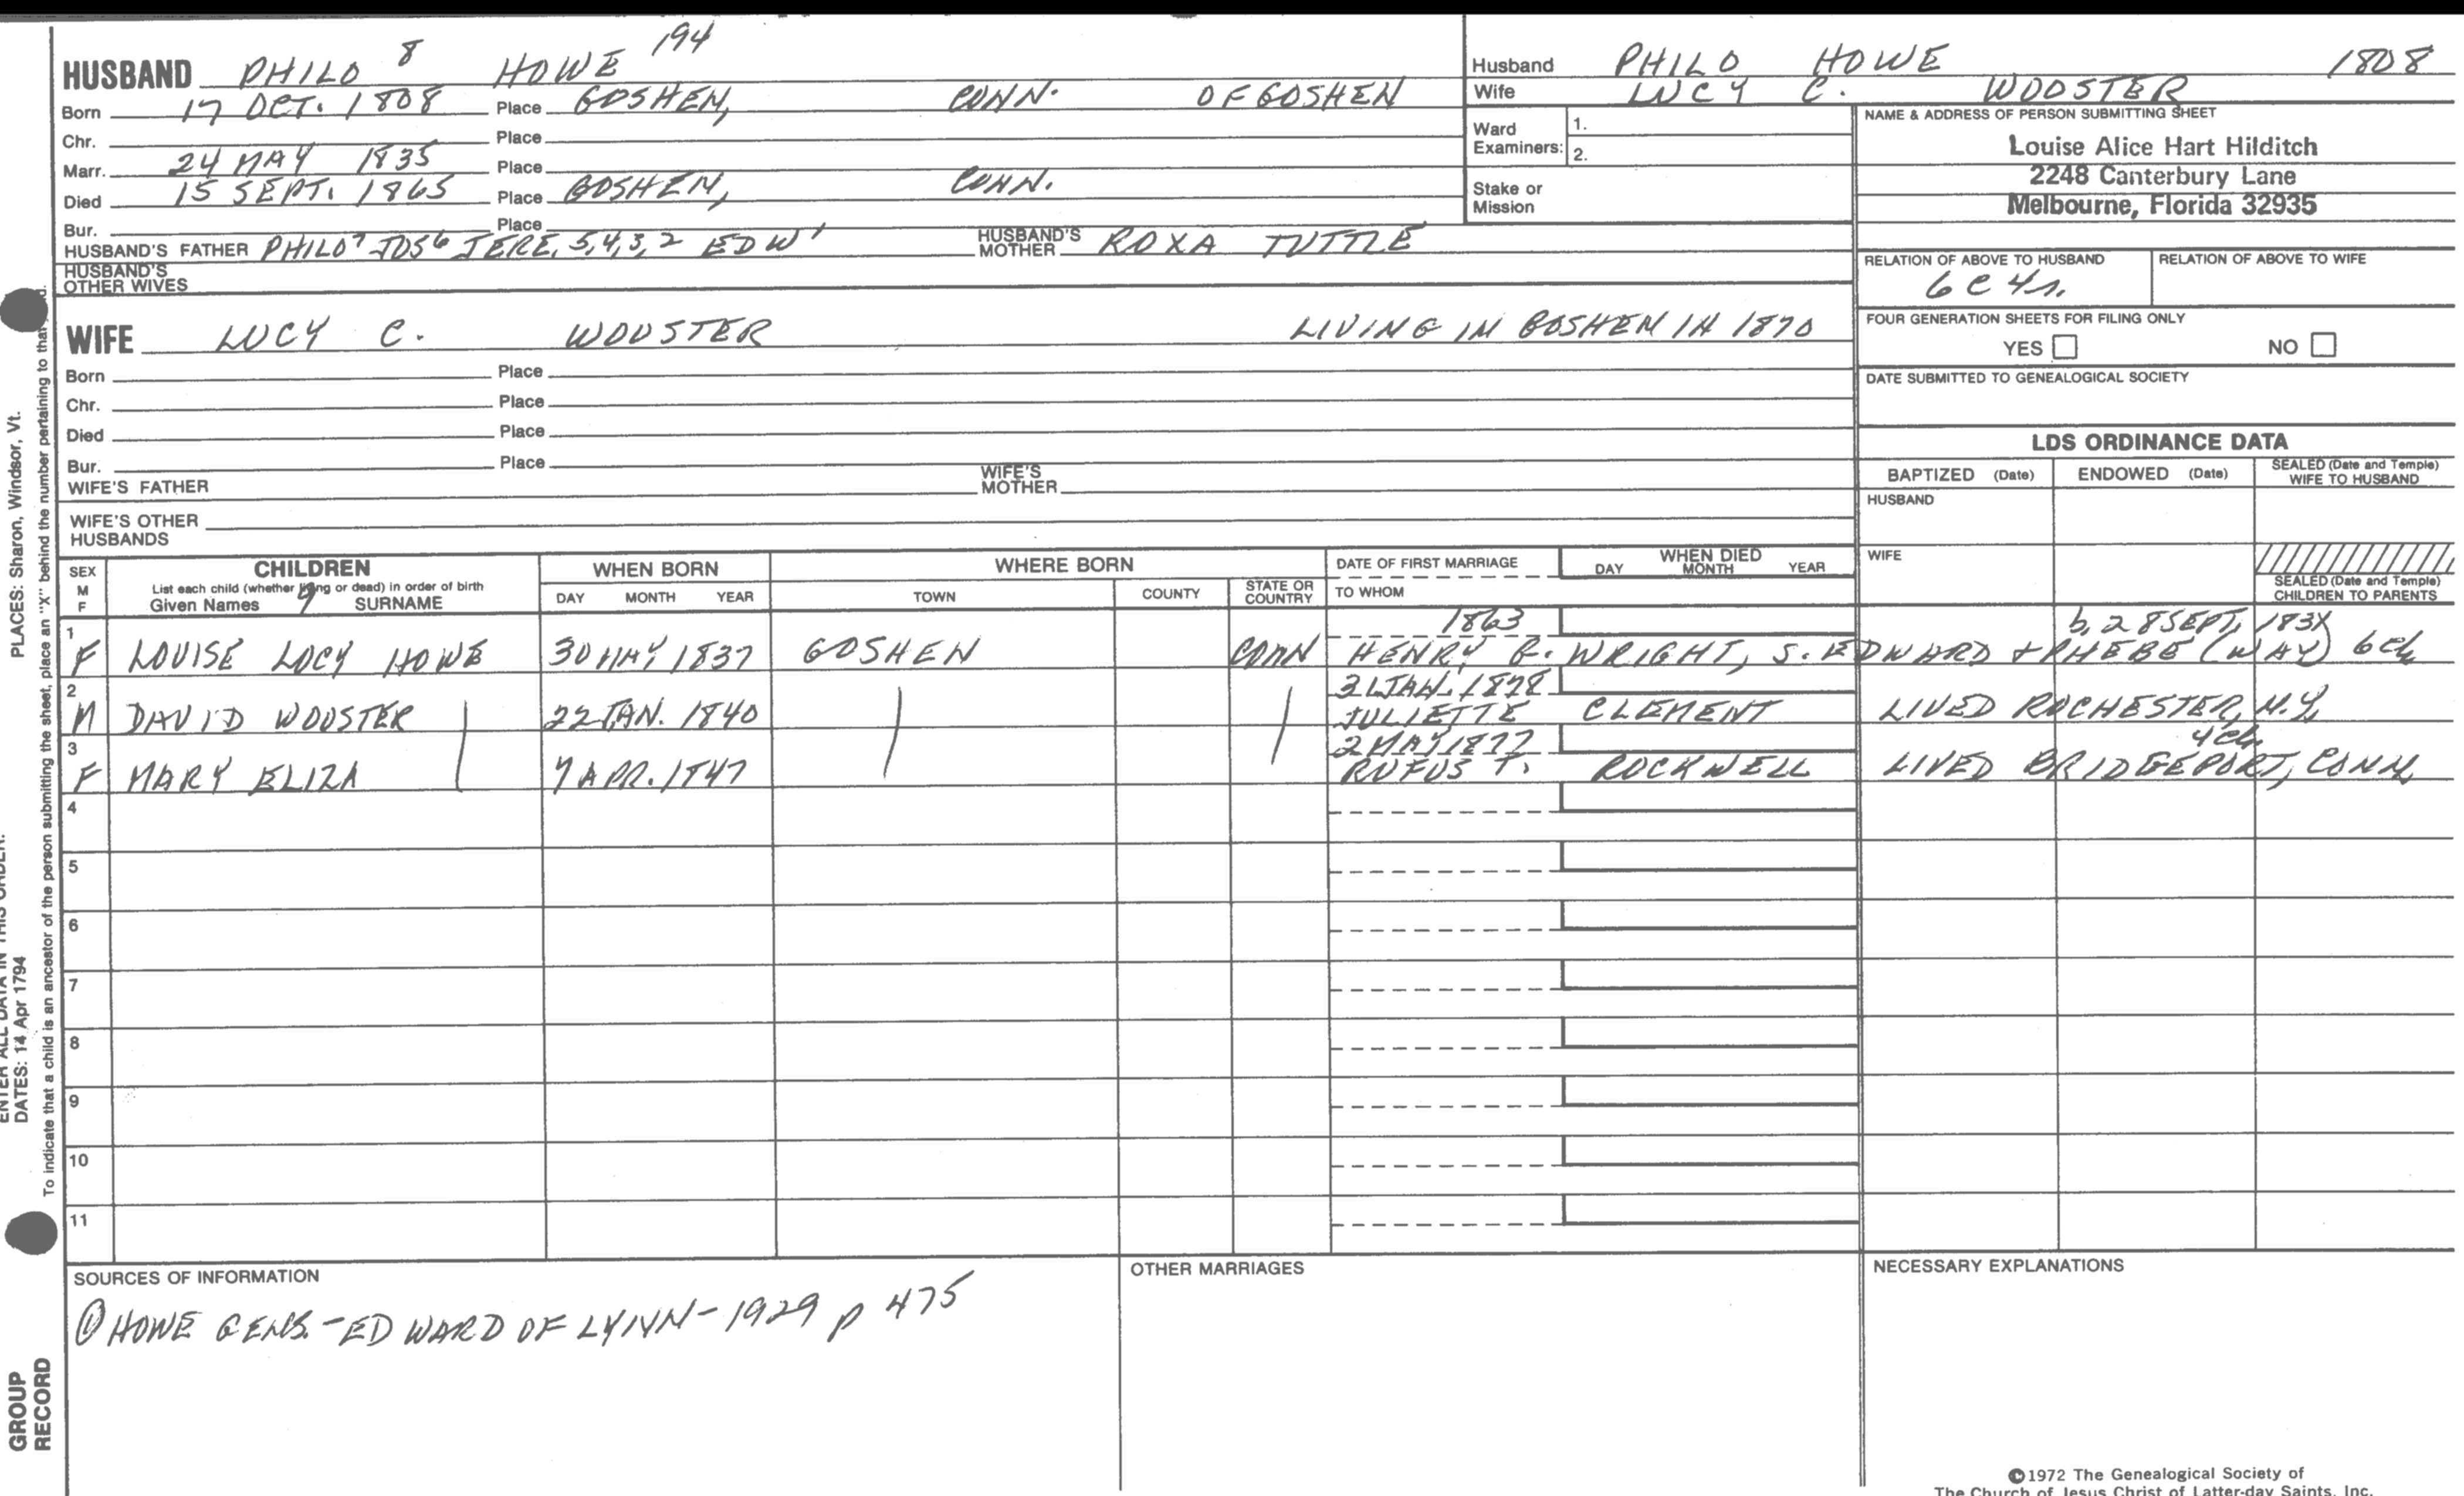 HUSBAND PHILO 8 HOWE 194
Born 17 OCT. 1808 Place GOSHEN, CONN. OF GOSHEN
Chr. Place
Marr. 24 MAY 1835 Place
Died 15 SEPT. 1865 Place GOSHEN, CONN.
Bur. Place
HUSBAND'S FATHER PHILO7 JOS6 JERE, 5,4,3,2 EDW1 HUSBAND'S MOTHER ROXA TUTTLE
HUSBAND'S OTHER WIVES
Husband PHILO HOWE 1808
Wife LUCY C. WOOSTER
Ward Examiners: 1.
2.
Stake or Mission
NAME & ADDRESS OF PERSON SUBMITTING SHEET
Louise Alice Hart Hilditch
2248 Canterbury Lane
Melbourne, Florida 32935
RELATION OF ABOVE TO HUSBAND RELATION OF ABOVE TO WIFE
6C4r.
FOUR GENERATION SHEETS FOR FILING ONLY
YES NO
DATE SUBMITTED TO GENEALOGICAL SOCIETY
WIFE LUCY C. WOOSTER LIVING IN GOSHEN IN 1870
Born Place
Chr. Place
Died Place
Bur. Place
WIFE'S FATHER WIFE'S MOTHER
WIFE'S OTHER HUSBANDS
LDS ORDINANCE DATA
BAPTIZED (Date) ENDOWED (Date) SEALED (Date and Temple) WIFE TO HUSBAND
HUSBAND
WIFE
SEALED (Date and Temple) CHILDREN TO PARENTS
SEX M F
CHILDREN
List each child (whether living or dead) in order of birth
Given Names 9 SURNAME
WHEN BORN
DAY MONTH YEAR
WHERE BORN
TOWN COUNTY STATE OR COUNTRY
DATE OF FIRST MARRIAGE
TO WHOM
WHEN DIED
DAY MONTH YEAR
1 1863 b. 28 SEPT, 183
F LOUISE LUCY HOWE 30 MAY 1837 GOSHEN CONN HENRY B. WRIGHT, S. EDWARD + PHEBE (WAY) 6 ch
2 JAN. 1878
M DAVID WOOSTER 22 JAN. 1840 JULIETTE CLEMENT LIVED ROCHESTER, N.Y.
3 2 MAY 1877 4 ch
F MARY ELIZA 7 APR. 1847 RUFUS T. ROCKWELL LIVED BRIDGEPORT, CONN.
4
5
6
7
8
9
10
11
SOURCES OF INFORMATION
① HOWE GENS. - EDWARD OF LYNN - 1929 p 475
OTHER MARRIAGES
NECESSARY EXPLANATIONS
©1972 The Genealogical Society of
The Church of Jesus Christ of Latter-day Saints, Inc.
PLACES: Sharon, Windsor, Vt.
To indicate that a child is an ancestor of the person submitting the sheet, place an "X" behind the number pertaining to that
ENTER ALL DATA IN THIS ORDER:
DATES: 14 Apr 1794
GROUP
RECORD